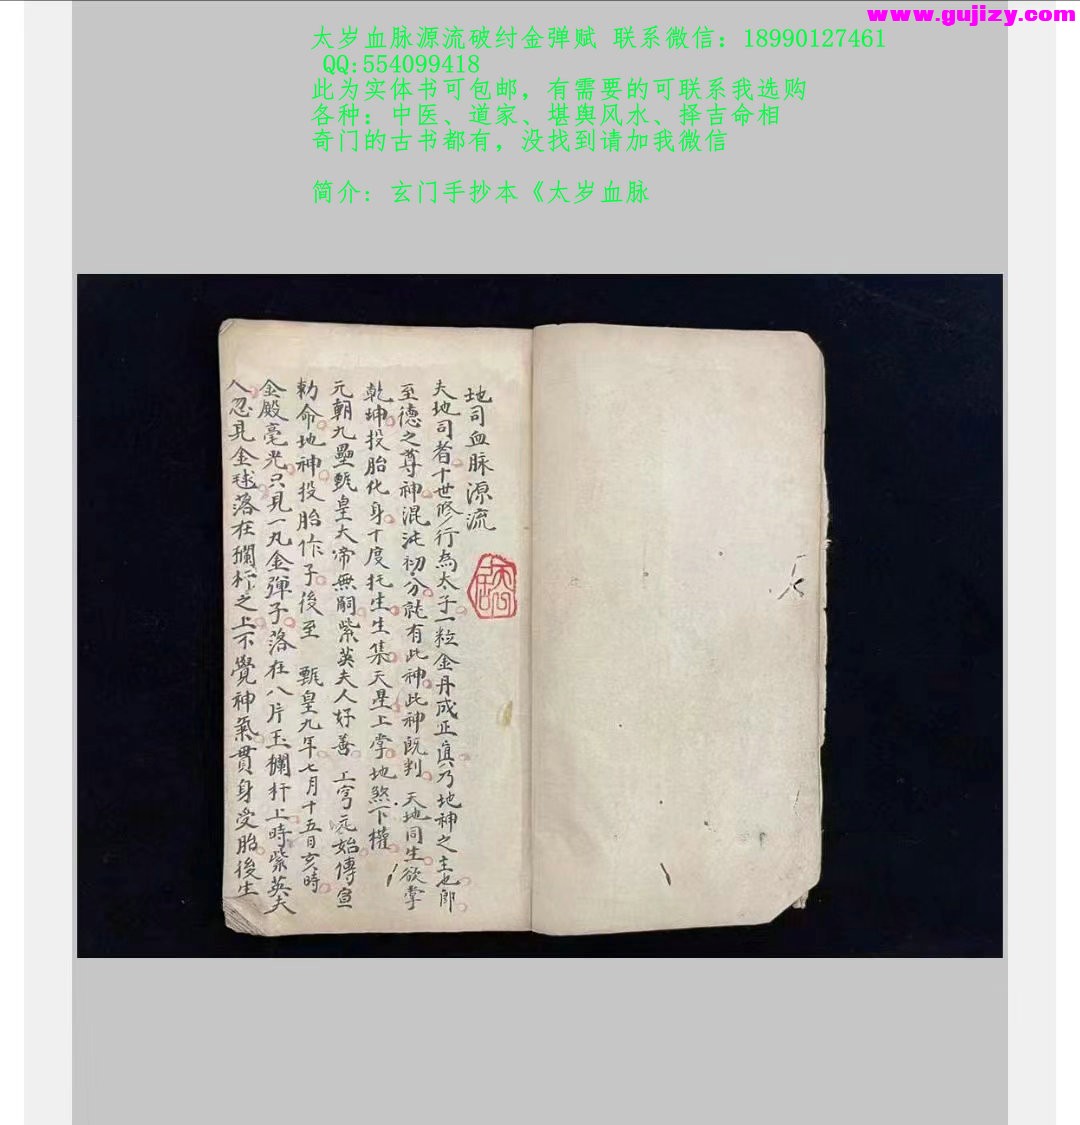 www.gujizy.com
太岁血脉源流破纣金弹赋 联系微信：18990127461
QQ:554099418
此为实体书可包邮，有需要的可联系我选购
各种：中医、道家、堪舆风水、择吉命相
奇门的古书都有，没找到请加我微信
简介：玄门手抄本《太岁血脉
地司血脉源流
夫地司者十世修行為太子一粒金丹成正真乃地神之主也郎
至德之尊神混沌初分就有此神此神既判 天地同生欲掌
乾坤投胎化身十度托生生集天星上掌地煞下權
元朝九壘甄皇大帝無嗣紫英夫人好善 上穹元始傳宣
勅命地神投胎作子後至 甄皇九年七月十五日亥時
金殿毫光只見一丸金彈子落在八片玉欄杆上時紫英夫
人忽見金毬落在欄杆之上不覺神氣貫身受胎後生